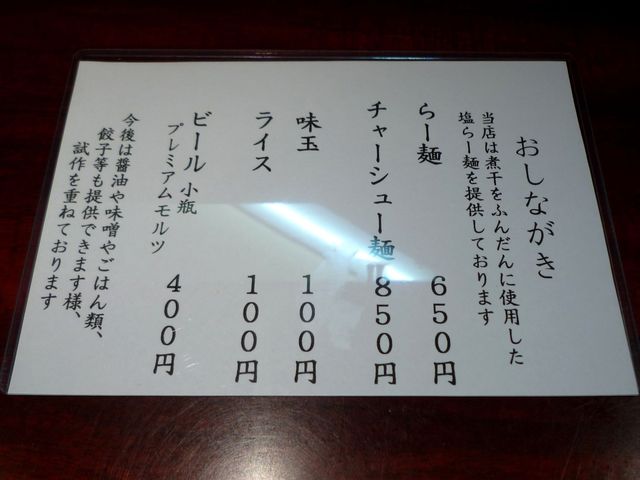 おしながき
当店は煮干をふんだんに使用した
塩らー麺を提供しております
らー麺 650円
チャーシュー麺 850円
味玉 100円
ライス 100円
ビール 小瓶 400円
プレミアムモルツ
今後は醤油や味噌やごはん類、
餃子等も提供できます様、
試作を重ねております